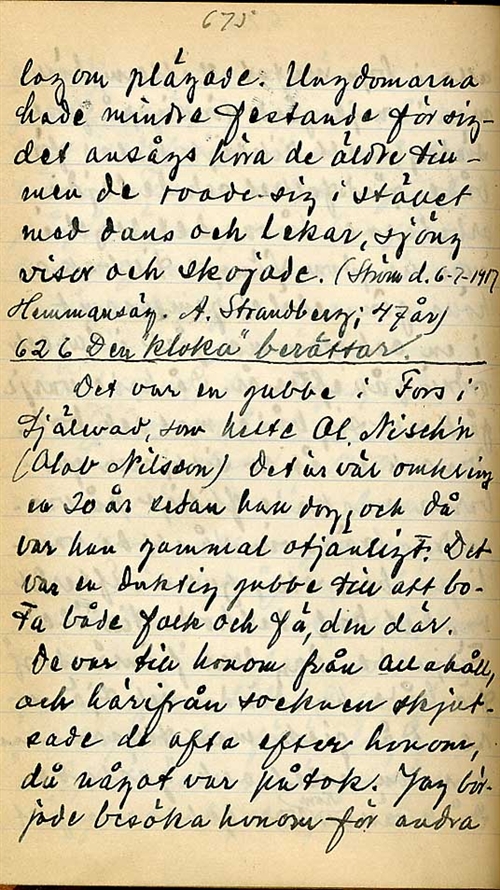 675
lagom plågade. Ungdomarna
hade mindre festande för sig-
det ansågs höra de äldre till -
men de roade sig i stället
med dans och lekar, sjöng
visor och skojade. (Ström d. 6-7-1917
Hemmansäg. A. Strandberg; 47 år)
626 Den "kloka" berättar.
Det var en gubbe i Fors i
Själevad, som hette Ol, Nisch'n
(Olov Nilsson) Det är väl omkring
en 20 år sedan han dog, och då
var han gammal otjänligt. Det
var en duktig gubbe till att bo-
ta både folk och fä, den där.
De var till honom från alla håll,
och härifrån socknen skjut-
sade de ofta efter honom,
då något var på tok. Jag bör-
jade besöka honom för andra